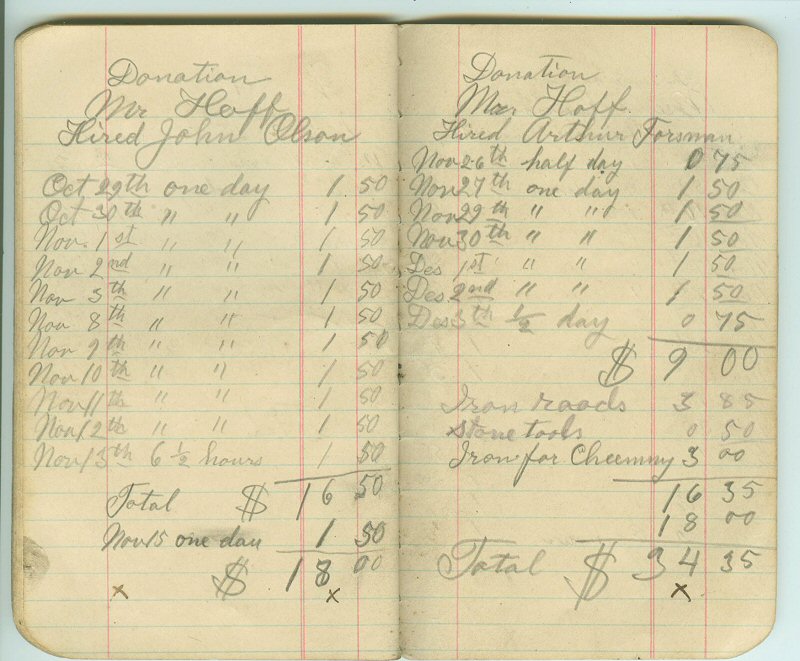 Donation
Mr Hoff
Hired John Olson
Oct 29th one day 1 50
Oct 30th " " 1 50
Nov. 1st " " 1 50
Nov 2nd " " 1 50
Nov 3th " " 1 50
Nov 8th " " 1 50
Nov 9th " " 1 50
Nov 10th " " 1 50
Nov 11th " " 1 50
Nov 12th " " 1 50
Nov 13th 6 1/2 hours 1 50
Total $ 16 50
Nov 15 one day 1 50
$ 18 00
x x
Donation
Mr. Hoff.
Hired Arthur Forsman
Nov 26th half day 0 75
Nov 27th one day 1 50
Nov 29th " " 1 50
Nov 30th " " 1 50
Des 1st " " 1 50
Des 2nd " " 1 50
Des 3th 1/2 day 0 75
$ 9 00
Iron roods 3 85
Stone tools 0 50
Iron for Cheemny 3 00
16 35
18 00
Total $ 34 35
x